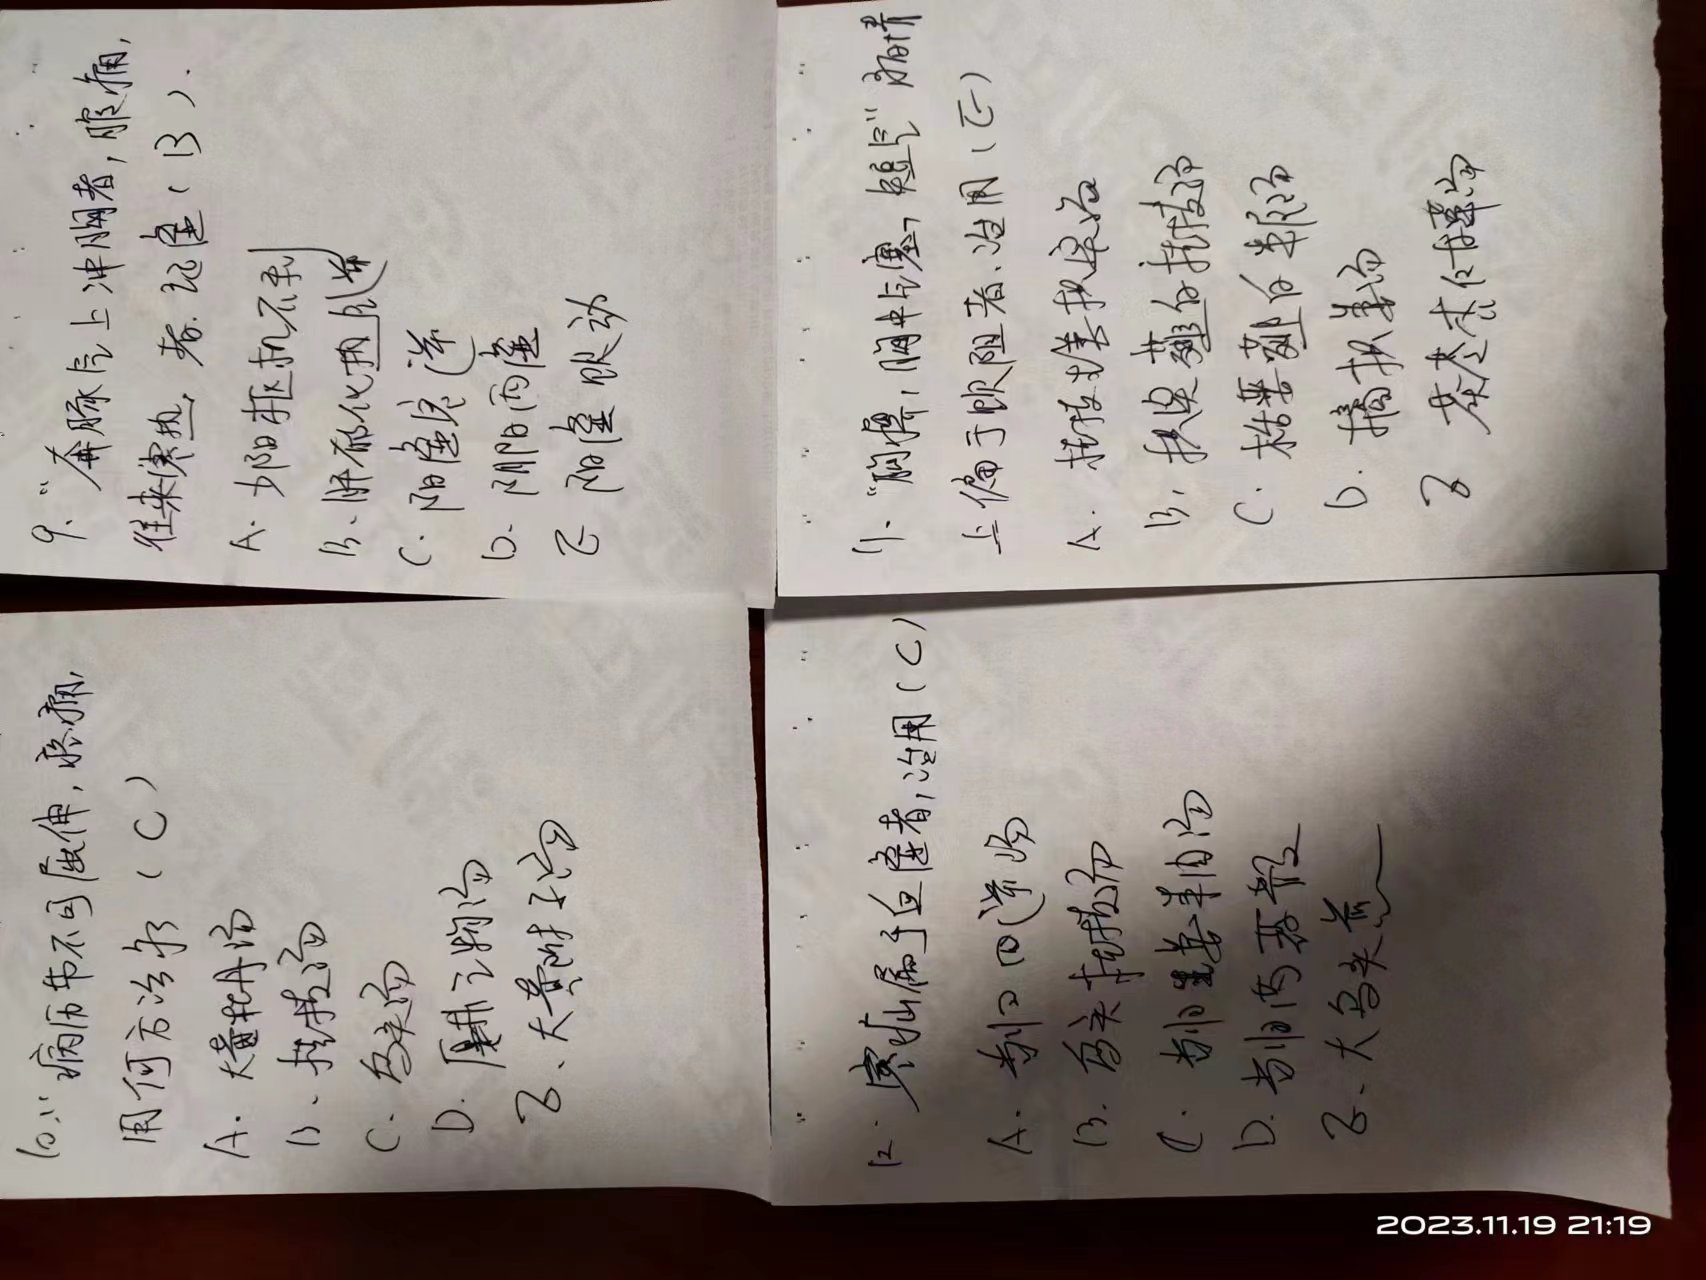 9、“奔豚气上冲胸者，腹痛，
往来寒热，者、记虚（B）.
A. 少阳枢机不利
B、肝郁化热气逆
C. 阳虚寒逆
D. 阴阳两虚
E 阳虚饮动
10、“病历节不可屈伸，疼痛，
用何方治疗（C）
A. 大黄牡丹汤
B、桂枝汤
C. 乌头汤
D. 厚朴七物汤
E、大黄附子汤
11、“胸痹，胸中气塞，短气”病情
上偏于饮阻者、治用（E）
A. 桂枝生姜枳实汤
B、枳实薤白桂枝汤
C. 栝蒌薤白半夏汤
D. 橘枳姜汤
E 茯苓杏仁甘草汤
12. 寒疝属于血虚者，治用（C）
A. 当归四逆汤
B. 乌头桂枝汤
C. 当归生姜羊肉汤
D. 当归芍药散
E、大乌头煎
2023.11.19 21:19